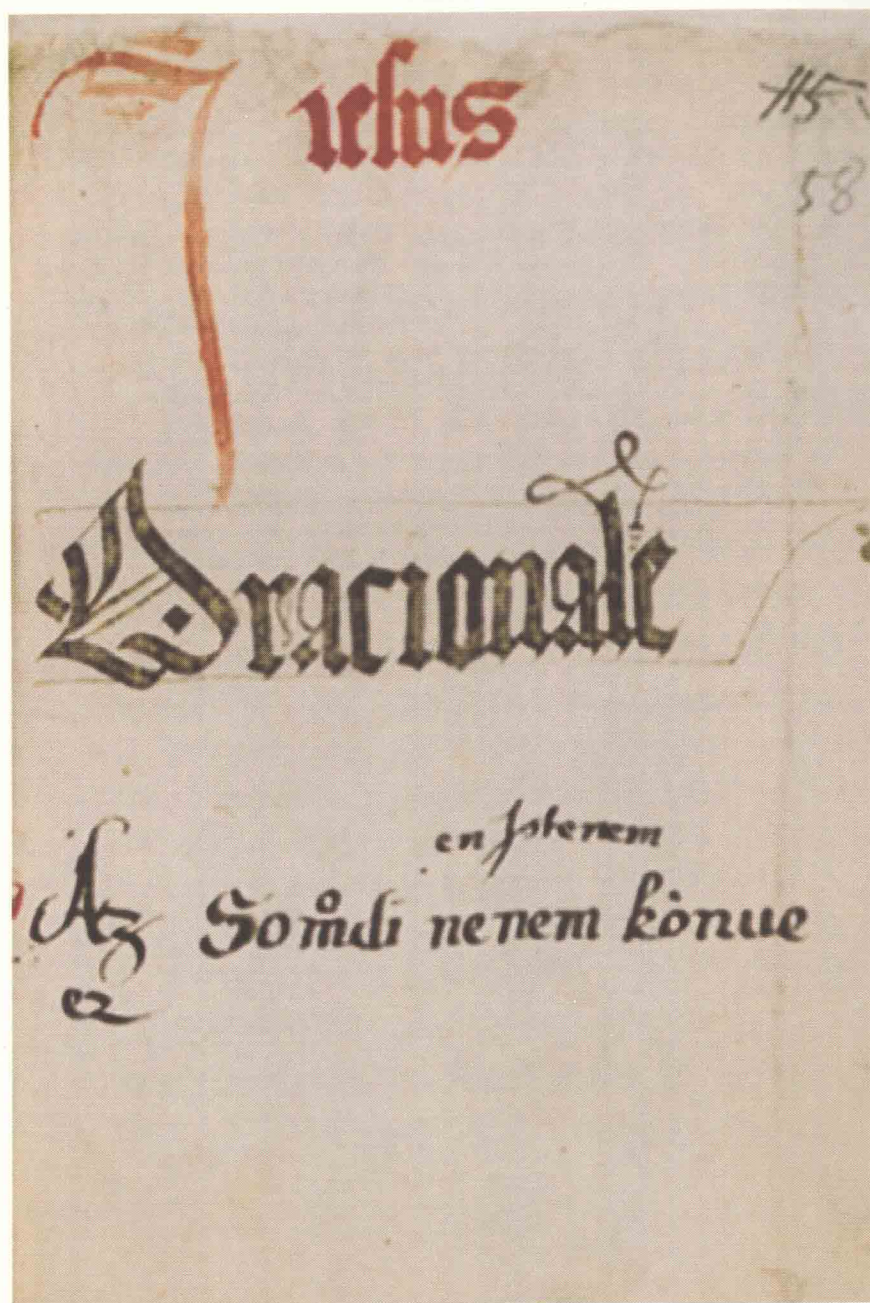 Jesus
115
58
Oracionale
en Jstenem
Az Somͦdi nenem kònue
ez